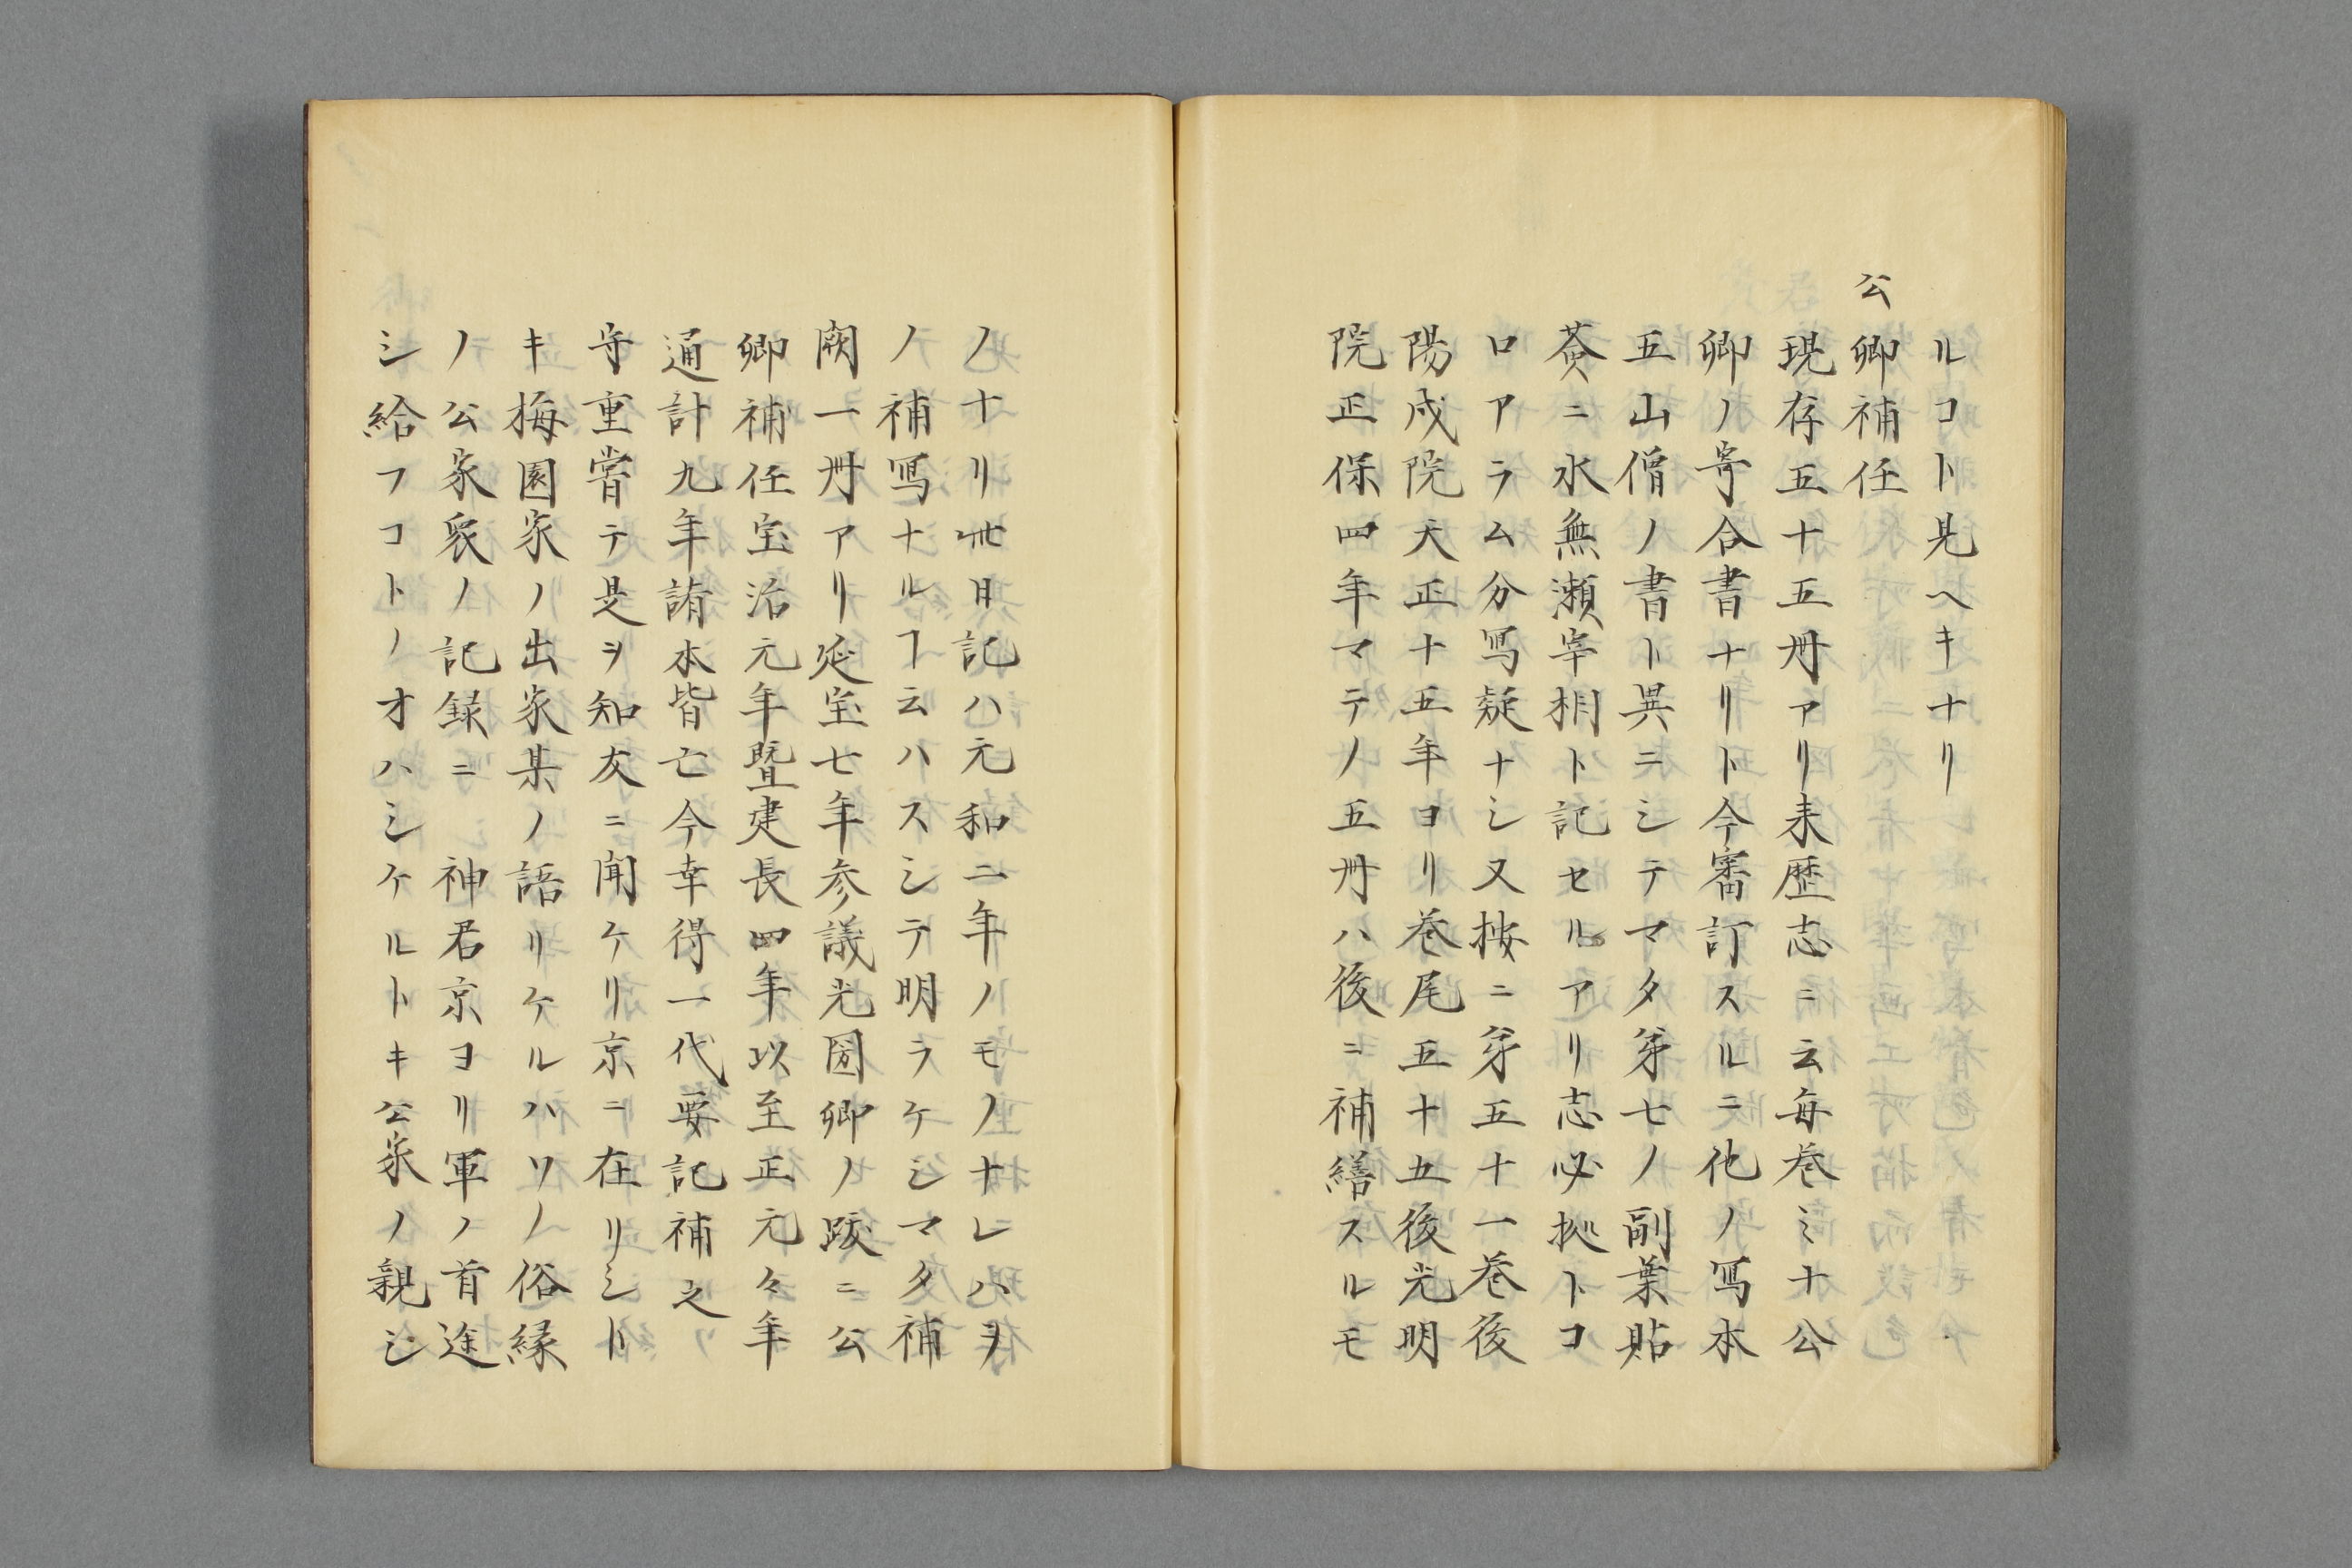 ルコト見ヘキナリ
公卿補任
現存五十五冊アリ来歴志ニ云毎巻ミナ公
卿ノ寄合書ナリト今審訂スルニ他ノ写本
五山僧ノ書ト異ニシテマタ第七ノ副葉貼
簽ニ水無瀬宰相ト記セルアリ志必拠トコ
ロアラム分写疑ナシ又按ニ第五十一巻後
陽成院天正十五年ヨリ巻尾五十五後光明
院正保四年マテノ五冊ハ後ニ補繕スルモ
ノナリ此日記ハ元和二年ノモノナレハヲ
ノ補写ナルヿ云ハスシテ明ラケシマタ補
闕一冊アリ延宝七年参議光圀卿ノ跋ニ公
卿補任宝治元年曁建長四年以至正元々年
通計九年諸本皆亡今幸得一代要記補之
守重嘗テ是ヲ知友ニ聞ケリ京ニ在リシト
キ梅園家ノ出家某ノ語リケルハソノ俗縁
ノ公家衆ノ記録ニ　神君京ヨリ軍ノ首途
シ給フコトノオハシケルトキ公家ノ親シ